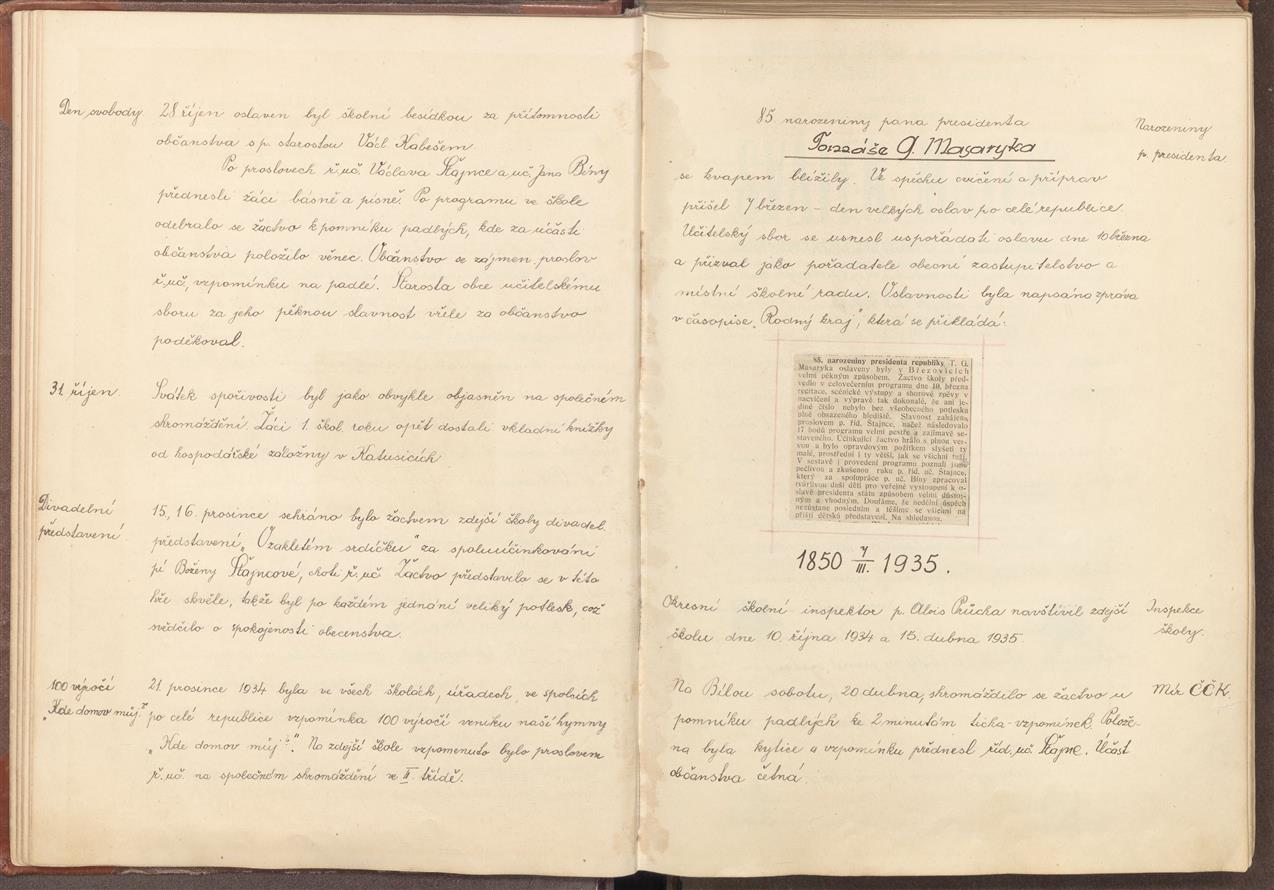 Den svobody.
28 říjen oslaven byl školní besídkou za přítomnosti
občanstva s p. starostou Václ. Kabešem.
Po proslovech ř. uč. Václava Štajnce a uč. Jana Bíny
přednesli žáci básně a písně. Po programu ve škole
odebralo se žactvo k pomníku padlých, kde za účasti
občanstva položilo věnec. Občanstvo se zájmem, proslov
ř. uč, vzpomínku na padlé. Starosta obce učitelskému
sboru za jeho pěknou slavnost vřele za občanstvo
poděkoval.
31. říjen.
Svátek spořivosti byl jako obvykle objasněn na společném
shromáždění. Žáci 1. škol. roku opět dostali vkladní knížky
od hospodářské záložny v Katusicích
Divadelní
představení.
15, 16. prosince sehráno bylo žactvem zdejší školy divadel.
představení „O zakletém srdíčku" za spoluúčinkování
pí Boženy Štajncové, choti ř. uč. Žactvo představilo se v této
hře skvěle, takže byl po každém jednání veliký potlesk, což
svědčilo o spokojenosti obecenstva.
100 výročí
„Kde domov můj?"
21. prosince 1934 byla ve všech školách, úřadech, ve spolcích
po celé republice vzpomínka 100 výročí vzniku naší hymny
„Kde domov můj?". Na zdejší škole vzpomenuto bylo proslovem
ř. uč. na společném shromáždění ve II třídě.
85 narozeniny pana presidenta
Tomáše G. Masaryka
Narozeniny
p. presidenta
se kvapem blížily. Ve spěchu cvičení a příprav
přišel 7 březen – den velkých oslav po celé republice.
Učitelský sbor se usnesl uspořádati oslavu dne 10 března
a přizval jako pořadatele obecní zastupitelstvo a
místní školní radu. O slavnosti byla napsána zpráva
v časopise „Rodný kraj", která se přikládá:
85. narozeniny presidenta republiky T. G.
Masaryka oslaveny byly v Březovicích
velmi pěkným způsobem. Žactvo školy před-
vedlo v celovečerním programu dne 10. března
recitace, scénické výstupy a sborové zpěvy v
nacvičení a výpravě tak dokonalé, že ani je-
diné číslo nebylo bez všeobecného potlesku
plně obsazeného hlediště. Slavnost zahájena
proslovem p. říd. Štajnce, načež následovalo
17 bodů programu velmi pestře a zajímavě se-
staveného. Účinkující žactvo hrálo s plnou ver-
vou a bylo opravdovým požitkem slyšeti ty
malé, prostřední i ty větší, jak se všichni
V sestavě i provedení programu poznali jsme
pečlivou a zkušenou ruku p. říd. uč. Štajnce,
který za spolupráce p. uč. Bíny zpracoval
tvárlivou duši dětí pro veřejné vystoupení k o-
slavě presidenta státu způsobem velmi důstoj-
ným a vhodným. Doufáme, že nedělní úspěch
nezůstane posledním a těšíme se všichni na
příští dětská představení. Na shledanou.
1850 7/III. 1935.
Okresní školní inspektor p. Alois Průcha navštívil zdejší
školu dne 10. října 1934 a 15. dubna 1935.
Inspekce
školy.
Na Bílou sobotu, 20 dubna, shromáždilo se žactvo u
pomníku padlých ke 2 minutám ticha - vzpomínek. Polože-
na byla kytice a vzpomínku přednesl říd. uč. Štajnc. Účast
občanstva četná.
Mír ČČK.